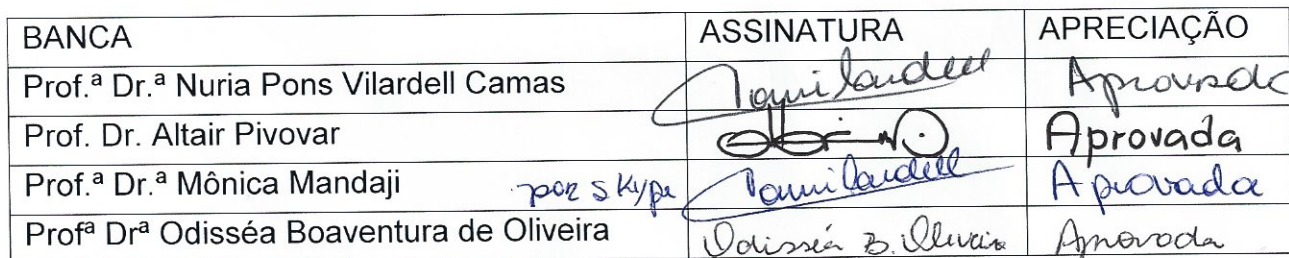 BANCA ASSINATURA APRECIAÇÃO
Prof.ª Dr.ª Nuria Pons Vilardell Camas Aprovada
Prof. Dr. Altair Pivovar Aprovada
Prof.ª Dr.ª Mônica Mandaji por skype Aprovada
Profª Drª Odisséa Boaventura de Oliveira Odisséa B. Oliveira Aprovada